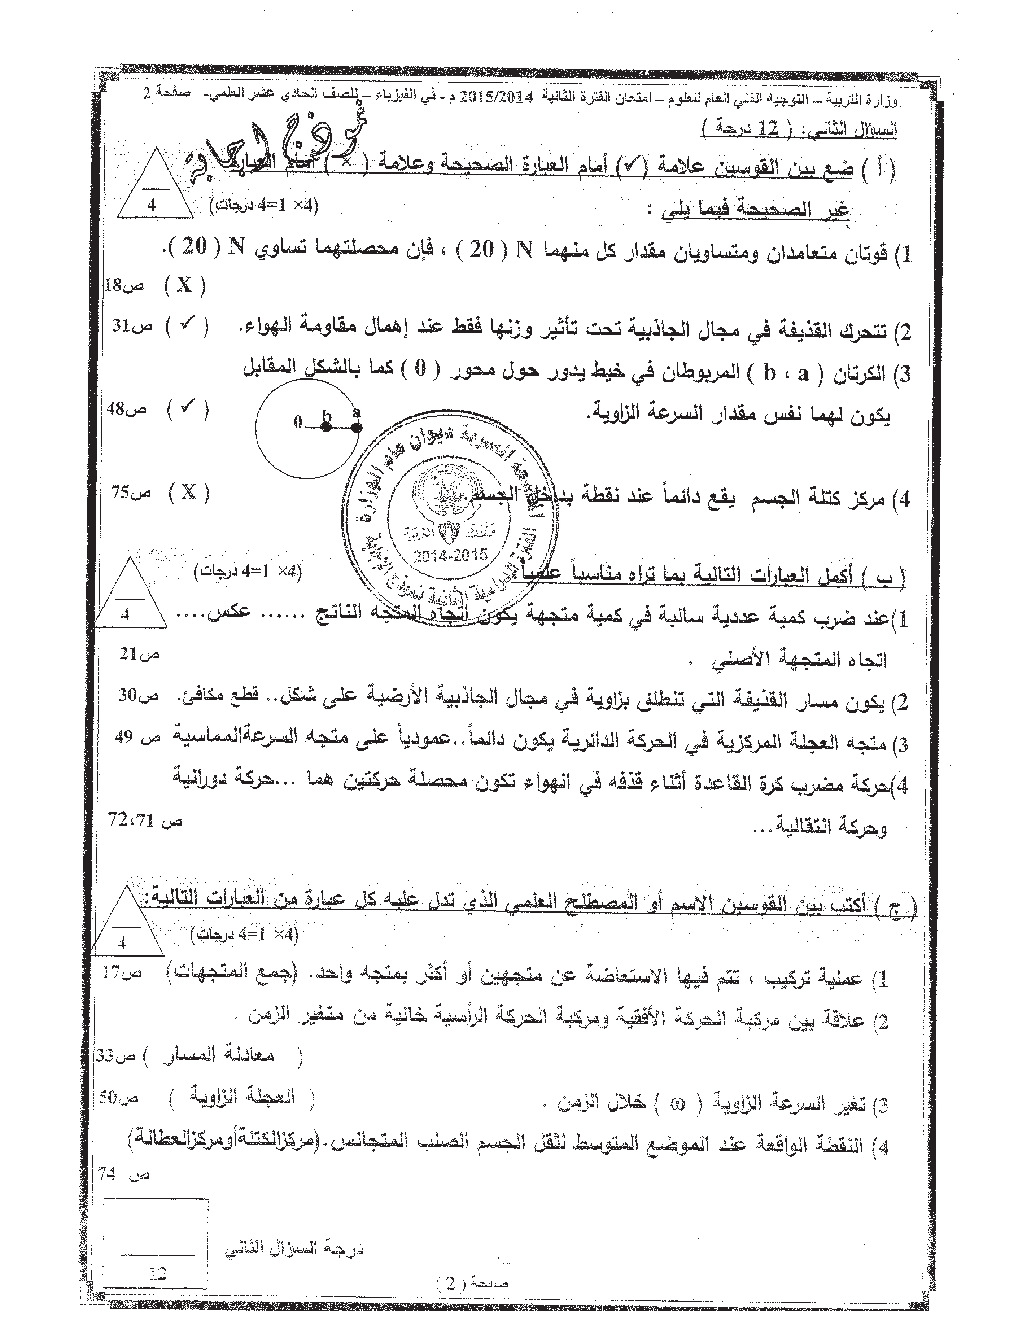 وزارة التربية – التوجيه الفني العام للعلوم – امتحان الفترة الثانية 2015/2014 م - في الفيزياء – للصف الحادي عشر العلمي- صفحة 2
نموذج إجابة
السؤال الثاني: ( 12 درجة )
( أ ) ضع بين القوسين علامة (✓) أمام العبارة الصحيحة وعلامة ( × ) أمام العبارة
غير الصحيحة فيما يلي :
(4× 1=4 درجات)
4
1) قوتان متعامدان ومتساويان مقدار كل منهما N ( 20 ) ، فإن محصلتهما تساوي N ( 20 ).
( X ) ص18
2) تتحرك القذيفة في مجال الجاذبية تحت تأثير وزنها فقط عند إهمال مقاومة الهواء. ( ✓ ) ص31
3) الكرتان ( b ، a ) المربوطان في خيط يدور حول محور ( 0 ) كما بالشكل المقابل
يكون لهما نفس مقدار السرعة الزاوية. ( ✓ ) ص48
0 b a
4) مركز كتلة الجسم يقع دائماً عند نقطة بداخل الجسم. ( X ) ص75
2014-2015
( ب ) أكمل العبارات التالية بما تراه مناسباً علمياً:
(4× 1=4 درجات)
4
1)عند ضرب كمية عددية سالبة في كمية متجهة يكون اتجاه المتجه الناتج ...... عكس....
اتجاه المتجهة الأصلي . ص21
2) يكون مسار القذيفة التي تنطلق بزاوية في مجال الجاذبية الأرضية على شكل.. قطع مكافئ. ص30
3) متجه العجلة المركزية في الحركة الدائرية يكون دائماً..عمودياً على متجه السرعةالمماسية ص 49
4)حركة مضرب كرة القاعدة أثناء قذفه في الهواء تكون محصلة حركتين هما ...حركة دورانية
وحركة انتقالية... ص 71،72
( ج ) أكتب بين القوسين الاسم أو المصطلح العلمي الذي تدل عليه كل عبارة من العبارات التالية:
(4× 1=4 درجات)
4
1) عملية تركيب ، تتم فيها الاستعاضة عن متجهين أو أكثر بمتجه واحد. (جمع المتجهات) ص17
2) علاقة بين مركبة الحركة الأفقية ومركبة الحركة الرأسية خالية من متغير الزمن .
( معادلة المسار ) ص33
3) تغير السرعة الزاوية ( ω ) خلال الزمن . ( العجلة الزاوية ) ص50
4) النقطة الواقعة عند الموضع المتوسط لثقل الجسم الصلب المتجانس.(مركزالكتلةأومركزالعطالة)
ص 74
درجة السؤال الثاني
12
صفحة ( 2 )